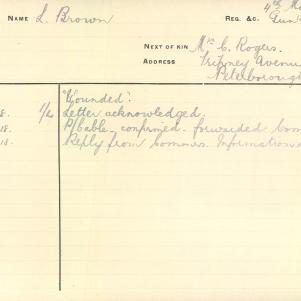 NAME L. Brown
REG. &C. 4th M
Gun
NEXT OF KIN Mrs C. Rogers.
ADDRESS Avenue
Peterborough
"Wounded".
8. 1/2 Letter acknowledged.
18. P/Cable confirmed. forwarded Com
18. Reply from Commrs. Information